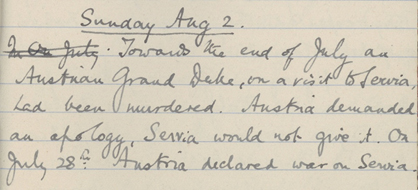 Sunday Aug 2.
In On July. Towards the end of July an
Austrian Grand Duke, on a visit to Servia,
had been murdered. Austria demanded
an apology, Servia would not give it. On
July 28th Austria declared war on Servia